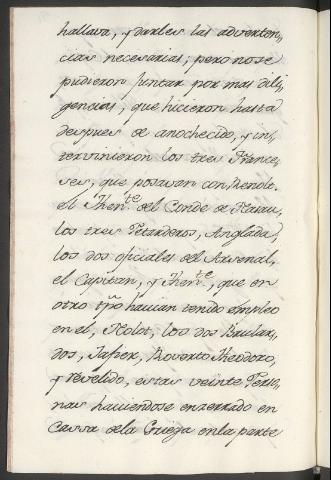 hallava, y darles las adverten,,
cias necesarias; pero no se
pudieron juntar por mas dili,,
gencias, que hicieron hasta
despues de anochecido, y in,,
tervinieron los tres France,,
ses, que posavan con Renolt.
el Then.te del Conde de
los tres Petarderos, Anglada,
los dos oficiales del Arsenal,
el Capitan, y Then.te, que en
otro tpõ havian tenido empleo
en el, Nolot, los dos Brular,,
dos, Jafier, Roverto Theodoro,
y Revelido, estas veinte Perso,,
nas haviendose enzerrado en
Cassa de la Griega en la parte